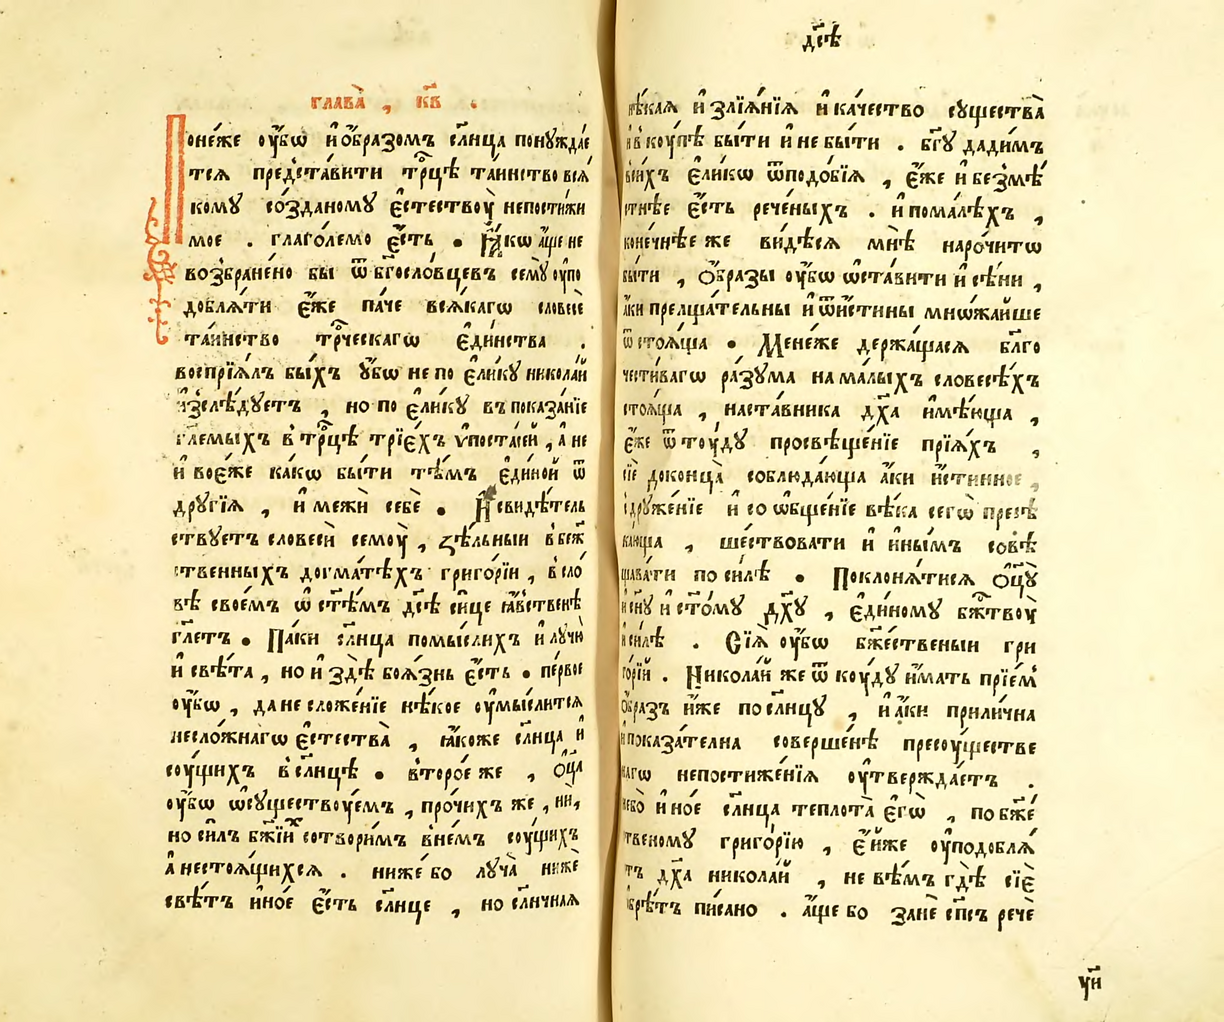 глава̀ , к҃в .
Поне́же ᲂу҆́бѡ и҆ ѡ҆́бразомъ сл҃нца понꙋждае
тсѧ предста́вити трⷪ҇цѣ та́инство всѧ́
комꙋ со́зданомꙋ є҆стествоу̀ непостижи
мое . глаго́лемо є҆́сть . Ꙗ҆́кѡ а҆́ще не
возбране́но бы ѿ бг҃осло́вцевъ семꙋ̀ ᲂупо
доблѧ́ти є҆́же па́че всѧ́кагѡ словесѐ
та́инство трⷪ҇ческагѡ є҆ди́нства .
воспрїѧ́лъ бы́хъ ᲂу҆́бѡ не по є҆ли́кꙋ никола́й
и҆зслѣ́дꙋетъ , но по є҆ли́кꙋ в показа́нїе
гл҃емыхъ в трⷪ҇цѣ трїе́хъ ѵ҆поста́сей , а҆ не
и҆ во є҆́же ка́кѡ бы́ти тѣ́мъ є҆ди́ной ѿ
дрꙋгі́ѧ , и҆ межѝ себѐ . И҆ свидѣ́тель
ствꙋетъ словесѝ семоу̀ , ѕѣ́льныи в бж҃
ственныхъ догма́тѣхъ григо́рїи , в сло́
вѣ свое́мъ ѡ҆ ст҃ѣмъ дс҃ѣ си́це ꙗ҆́вственѣ
гл҃етъ . Па́ки сл҃нца помы́слихъ и҆ лꙋчю̀
и҆ свѣ́та , но и҆ здѣ̀ боѧ́знь є҆́сть . пе́рвое
ᲂу҆́бѡ , да не сложе́нїе нѣ́кое ᲂу҆мы́слитсѧ
несло́жнагѡ є҆стества̀ , ꙗ҆́коже сл҃нца и҆
соу́щихъ в сл҃нцѣ . второ́е же , ѻ҆ц҃а
ᲂу҆́бѡ ѡ҆сꙋществоу́емъ , про́чихъ же , ни ,
но си́лъ бж҃їихъ сотвори́мъ в не́мъ соу́щихъ
а҆ не стоѧ́щихсѧ . ниже́ бо лꙋча̀ нижѐ
свѣ́тъ и҆но́е є҆́сть сл҃нце , но сл҃ничнаѧ
дс҃ѣ
нѣ́каѧ и҆ злїѧ́нїѧ и҆ ка́чество сꙋщества̀
и҆ вкоу́пѣ бы́ти и҆ не бы́ти . бг҃ꙋ дади́мъ
всѣ́хъ є҆ли́кѡ ѿ подо́бїѧ , є҆́же и҆ безмѣ́
стнѣе є҆́сть рече́ныхъ . и҆ по ма́лѣхъ ,
коне́чнѣе же ви́дѣсѧ мнѣ̀ наро́читѡ
бы́ти , ѻ҆́бразы ᲂу҆́бѡ ѡ҆ста́вити и҆ сѣ́ни ,
а҆́ки прелща́тельны и҆ ѿ и҆́стины мнѡжа́йше
ѿстоѧ́ща . Мене́же держа́щасѧ бл҃го
чести́вагѡ ра́зꙋма на ма́лыхъ словесѣ́хъ
стоѧ́ща , наста́вника дх҃а и҆мѣ́юща ,
є҆́же ѿтоу́дꙋ просвѣще́нїе прїѧ́хъ ,
сїѐ до конца̀ соблюда́юща а҆́ки и҆́стинное ,
сдрꙋже́нїе и҆ соѡбще́нїе вѣ́ка сегѡ̀ пресѣ
ка́юща , ше́ствовати и҆ и҆ны́мъ совѣ
щава́ти по си́лѣ . Поклонѧ́тисѧ ѻ҆ц҃ꙋ̀
и҆ сн҃ꙋ и҆ ст҃о́мꙋ дх҃ꙋ , є҆ди́номꙋ бж҃твоу̀
и҆ си́лѣ . Сїѧ̀ ᲂу҆́бѡ бж҃е́ственыи гри
го́рїй . Никола́й же ѿкоу́дꙋ и҆́мать прїе́мъ
ѻ҆́бразъ и҆́же по сл҃нцꙋ , и҆ а҆́ки прили́чна
и҆ показа́телна соверше́нѣ пресоу́ществе
нагѡ непостиже́нїѧ ᲂу҆твержда́етъ .
не́бо и҆но́е сл҃нца теплота̀ є҆гѡ̀ , по бж҃е́
ственомꙋ григо́рїю , є҆́йже ᲂу҆подоблѧ́
тъ дх҃а никола́й , не вѣ́мъ гдѣ̀ сїѐ
ѡбрѣ́тъ пи́сано . а҆́ще бо занѐ сп҃съ речѐ
ун҃